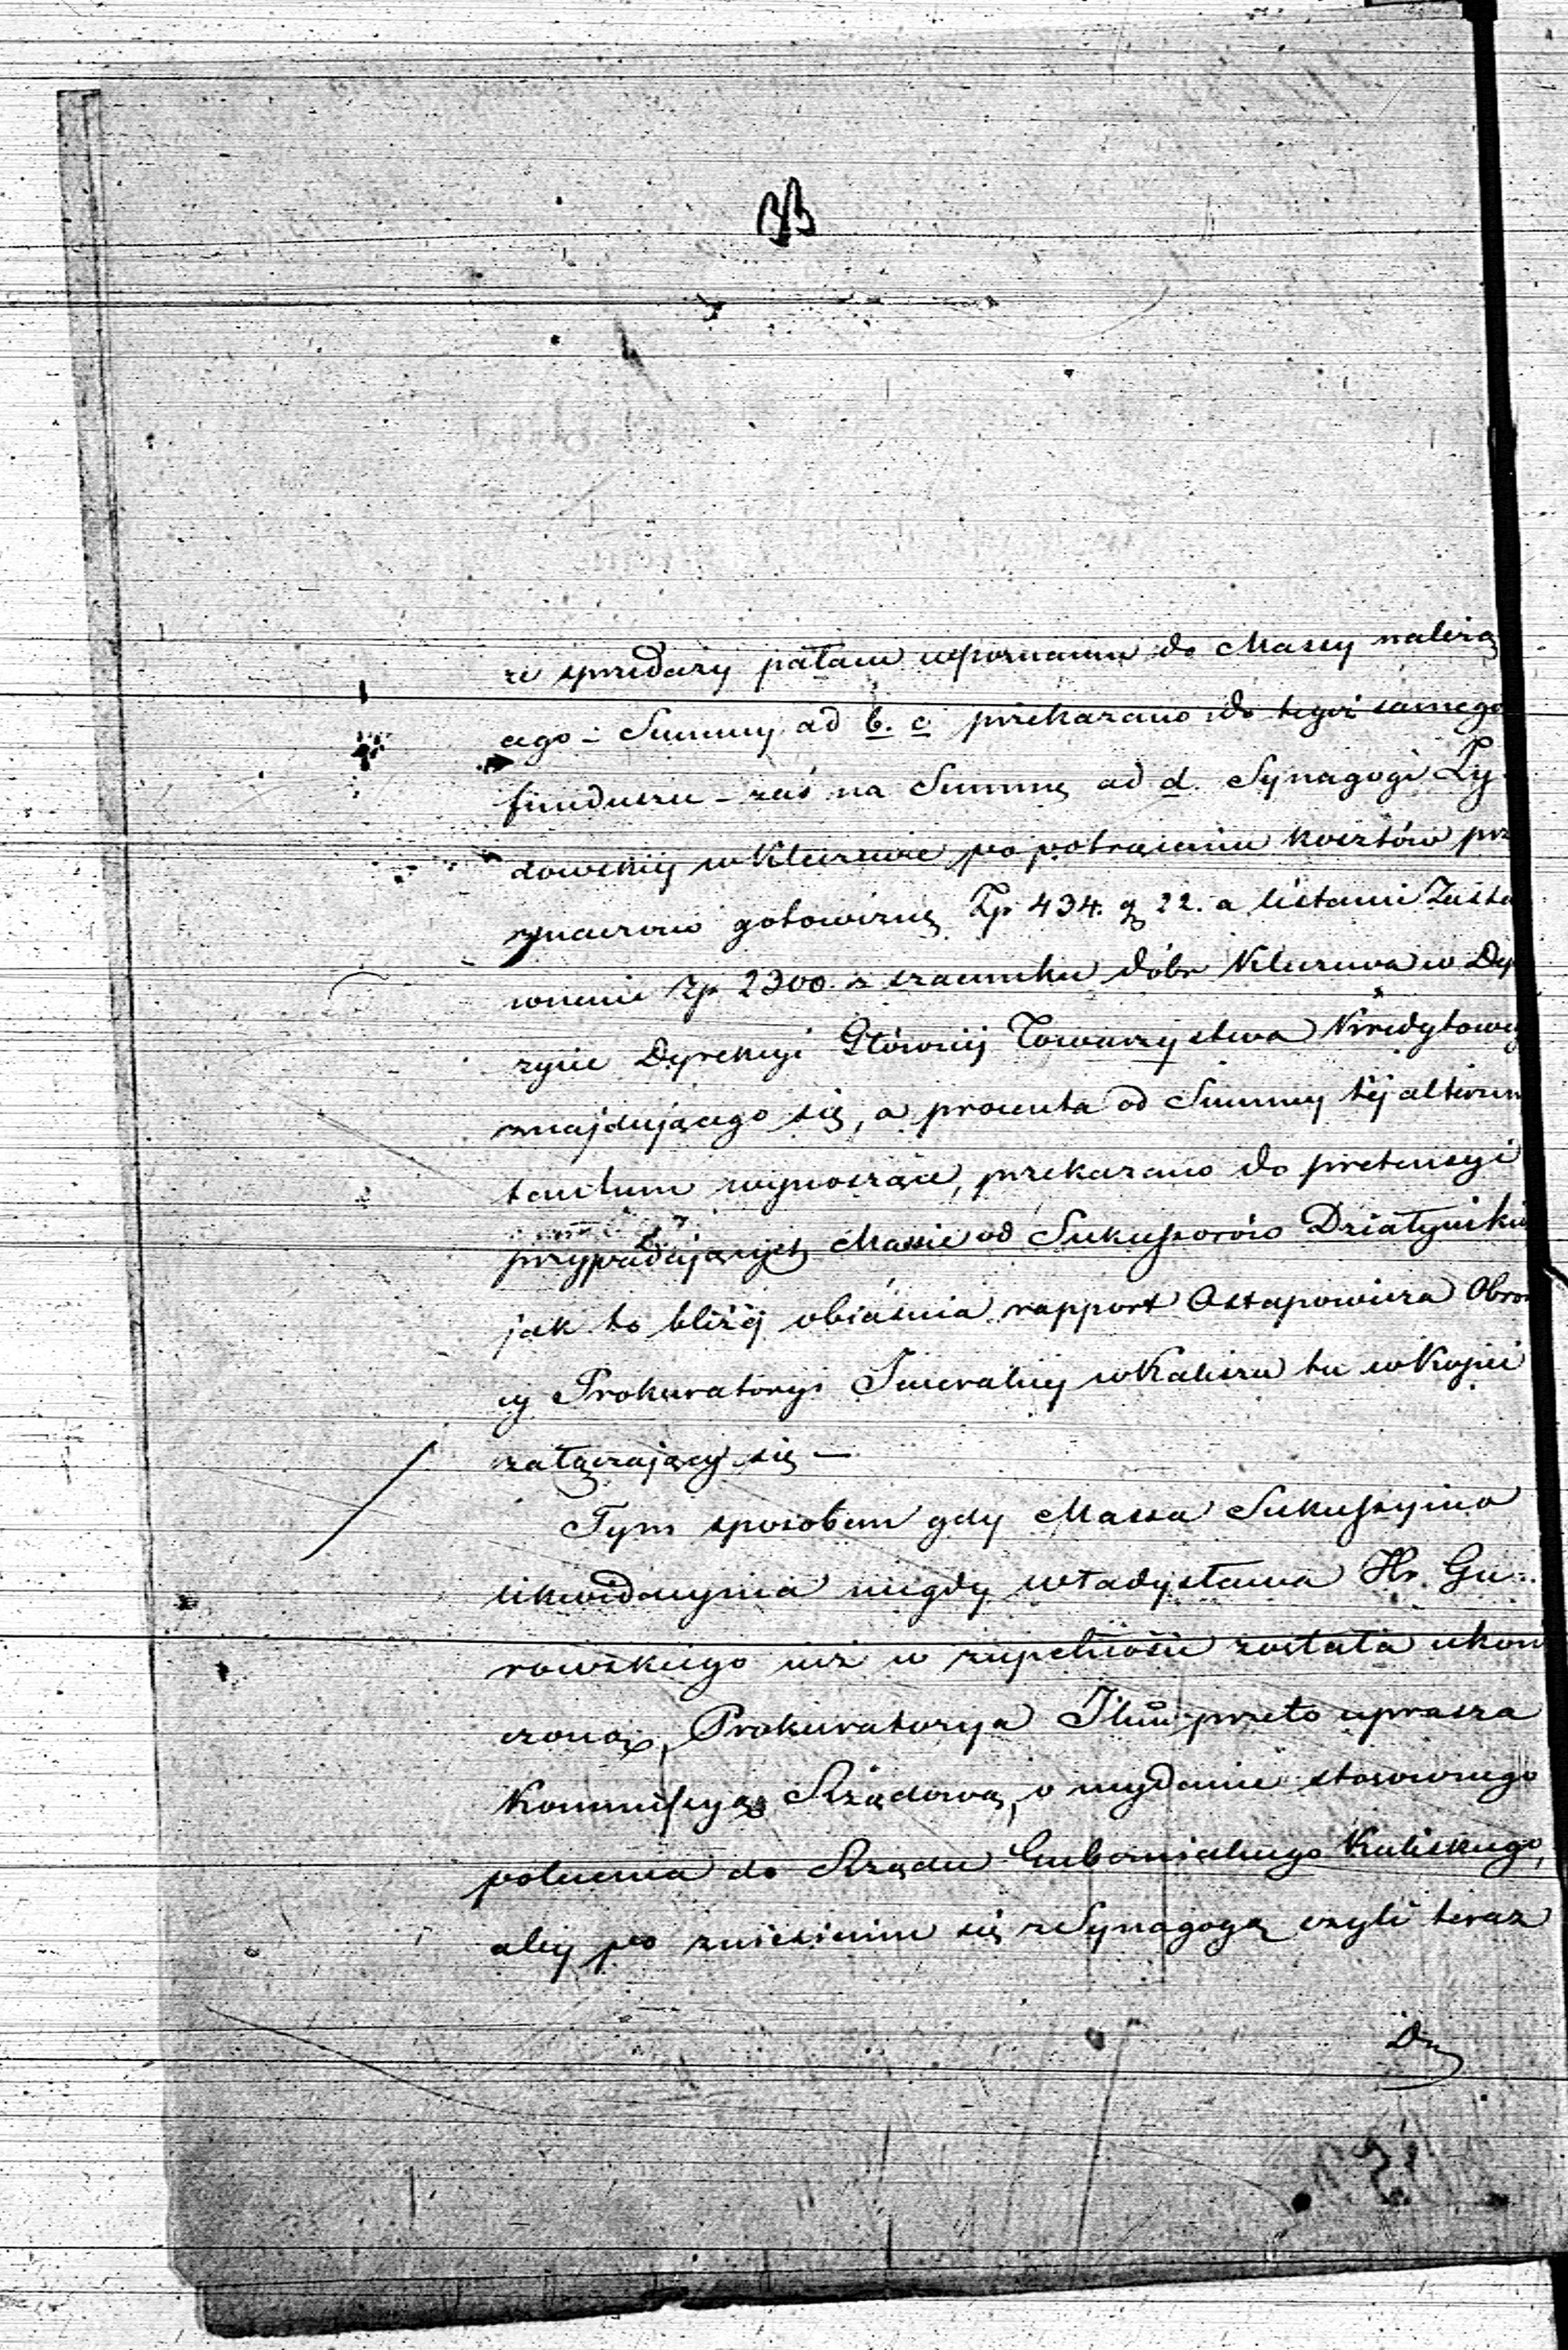 33
ze sprzedaży pałacu wspomnianu do Massy należą
cego – Summy ad b. c przekazano do tegoż samego
funduszu – zaś na Summę ad d. Synagogi Ży-
dowskiej w Kleczewie po potrąceniu kosztów prz
znaczono gotowizną Zp 434. g 22. a listami Zasta
wnemi Zp 2300. z szacunku dóbr Kleczewa w Dep
zycie Dyrekcyi Głównej Towarzystwa Kredytoweg
znajdującego się, a procenta od Summy téj alterum
tantum wynoszące, przekazano do pretensyi
przypadających Massie od Sukcessorów Działyńskich
jak to bliżéj obiaśnia rapport Ostapowicza Obroń
cy Prokuratoryi Jeneralnej w Kaliszu tu w Kopii
załączający się —
Tym sposobem gdy Massa Sukcessyino
likwidacyjna niegdy Władysława Hr. Gu-
rowskiego już w zupełności została ukoń
czoną, Prokuratorya Jlna przeto uprasza
Kommissyą Rządową, o wydanie stosownego
polecenia do Rządu Gubernialnego Kaliskiego,
aby po zniesieniu się z Synagogą czyli teraz